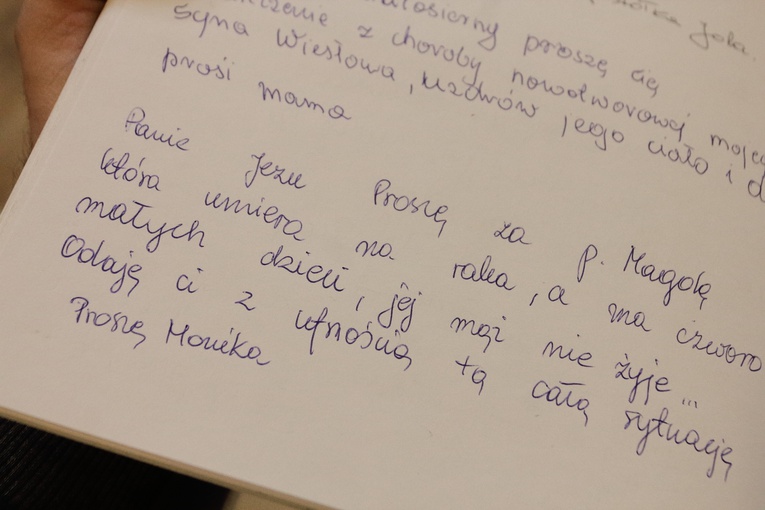 Jola.
miłosierny proszę cię
z choroby nowotworowej mojego
syna Wiesłowa, uzdrów jego ciało i d
prosi mama
Panie Jezu Proszę za p. Magdą
która umiera na raka, a ma czworo
małych dzieci, jej mąż nie żyje...
Oddaję ci z ufnością tą całą sytuację
Proszę Monika